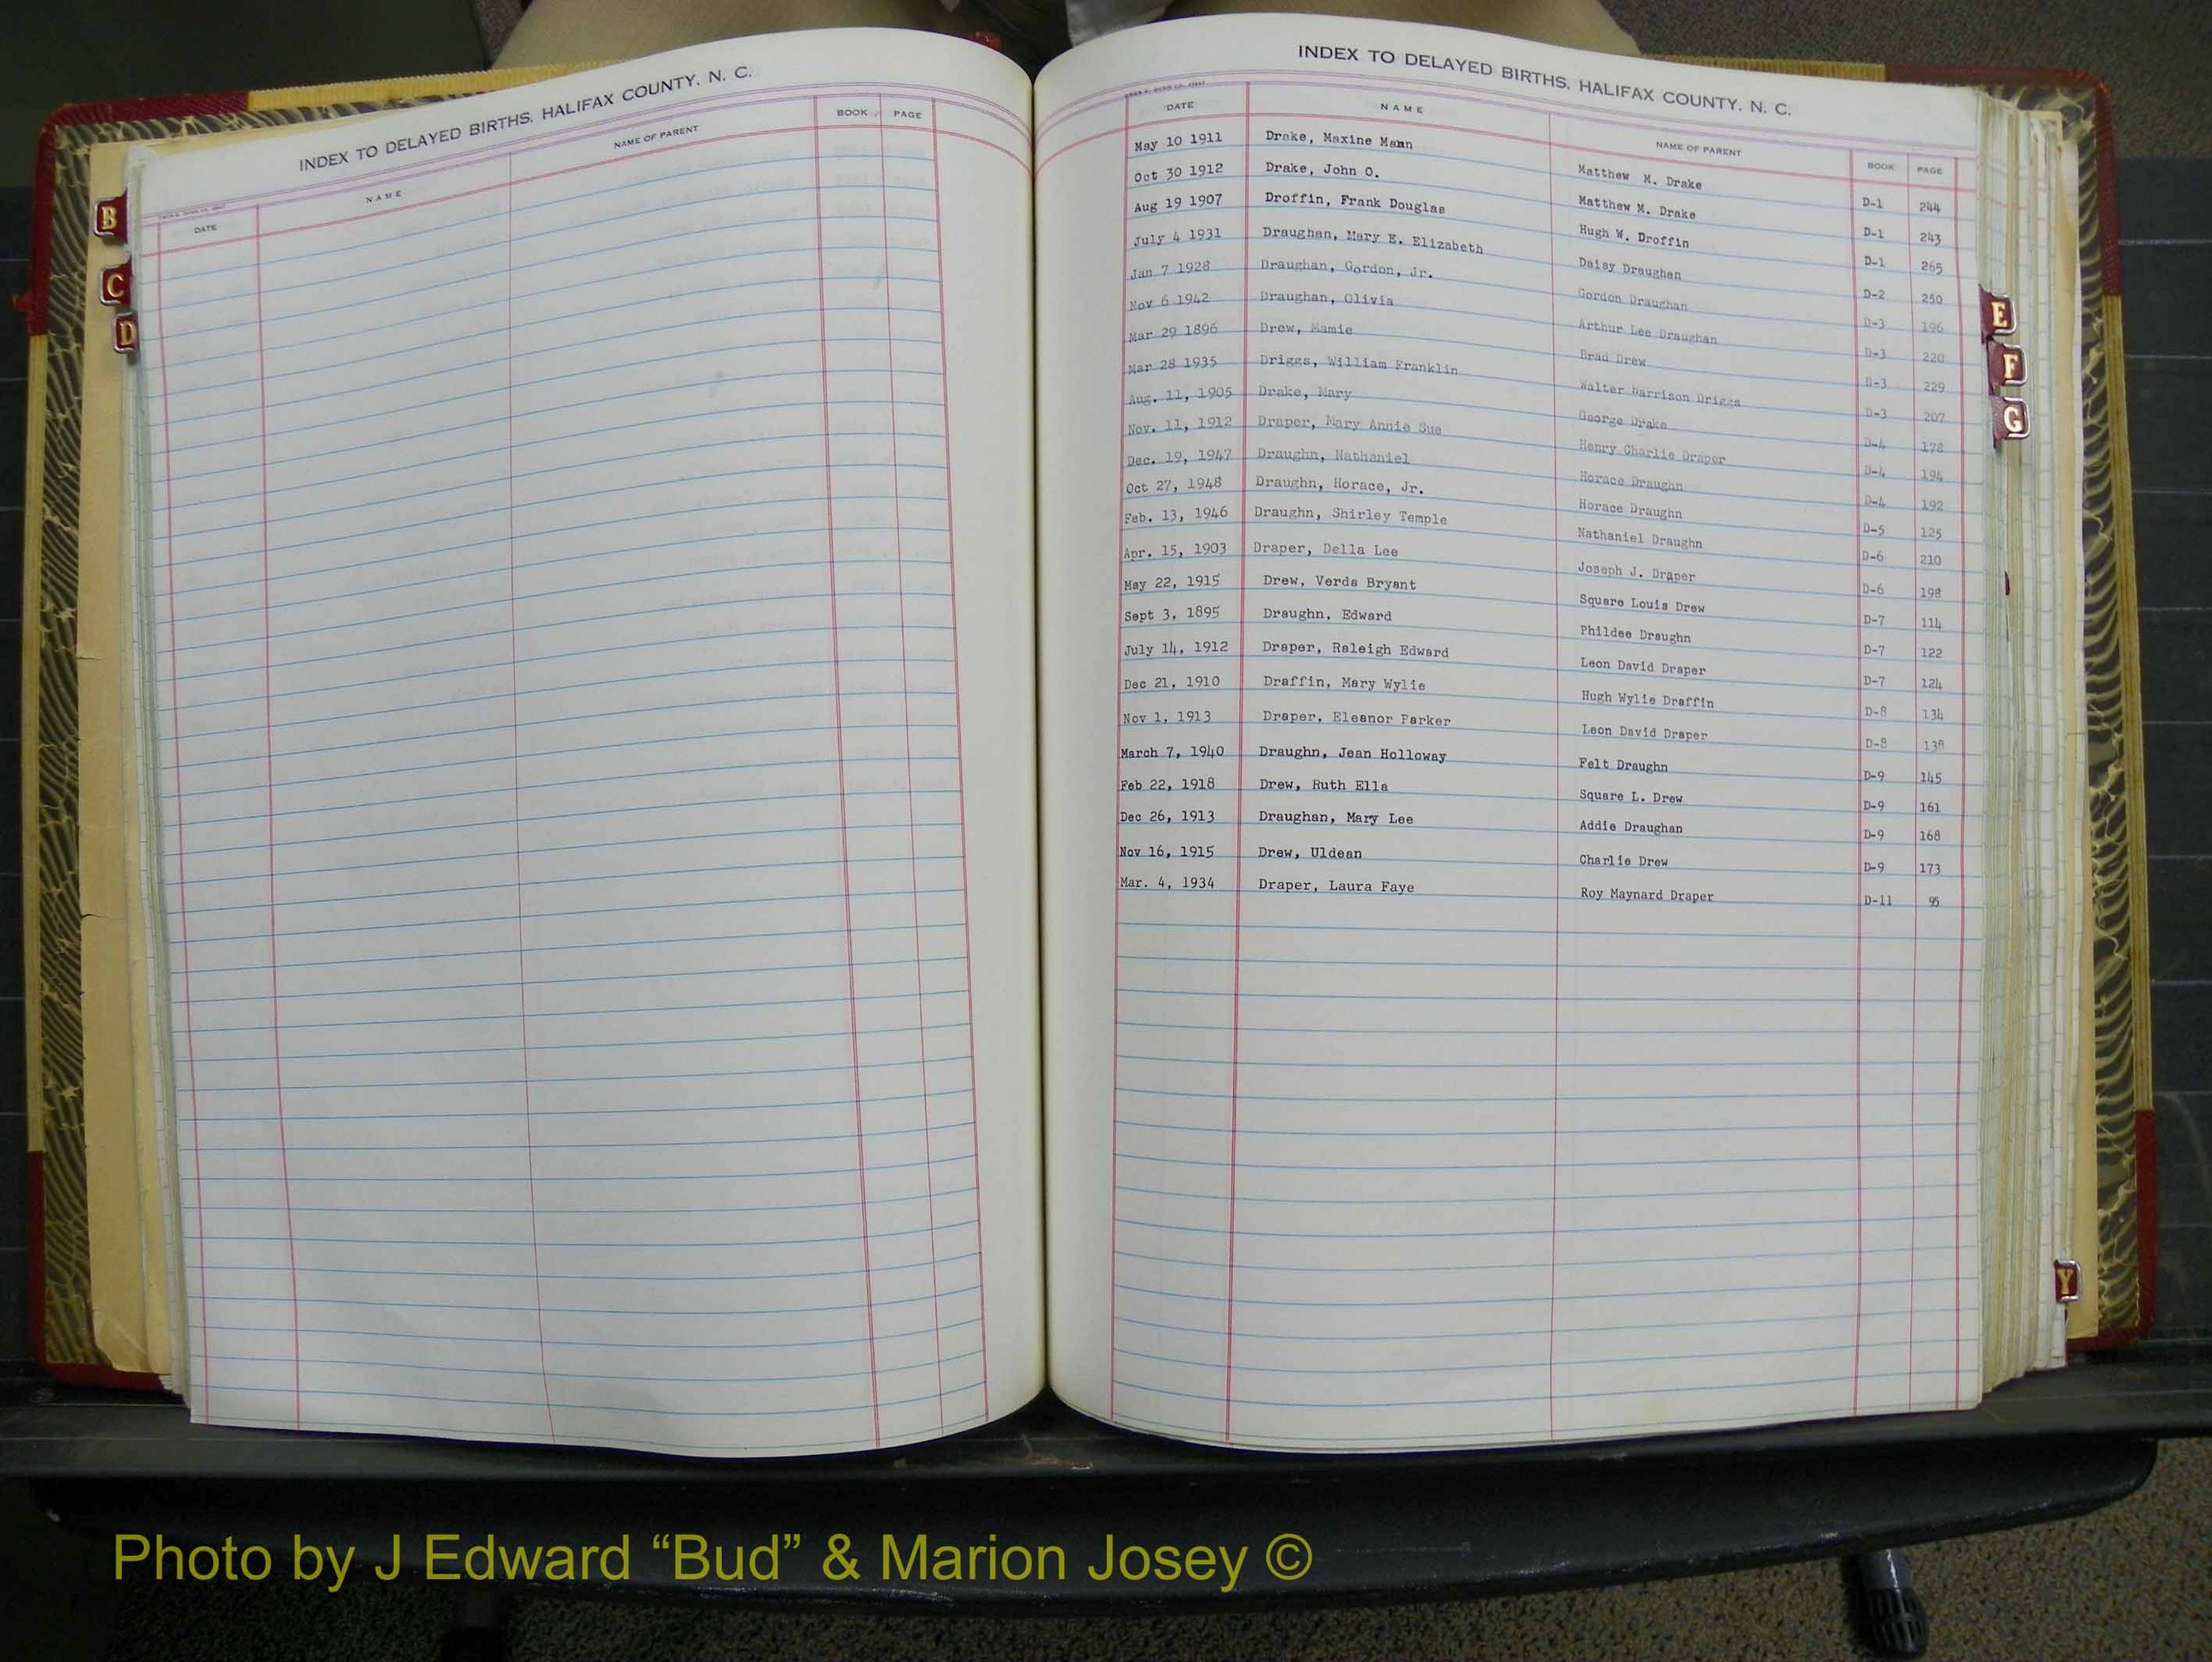 INDEX TO DELAYED BIRTHS, HALIFAX COUNTY, N. C.
DATE NAME NAME OF PARENT BOOK PAGE
B
C
D
INDEX TO DELAYED BIRTHS, HALIFAX COUNTY, N. C.
DATE NAME NAME OF PARENT BOOK PAGE
May 10 1911 Drake, Maxine Mann Matthew M. Drake D-1 244
Oct 30 1912 Drake, John O. Matthew M. Drake D-1 243
Aug 19 1907 Droffin, Frank Douglas Hugh W. Droffin D-1 265
July 4 1931 Draughan, Mary E. Elizabeth Daisy Draughan D-2 250
Jan 7 1928 Draughan, Gordon, Jr. Gordon Draughan D-3 196
Nov 6 1942 Draughan, Olivia Arthur Lee Draughan D-3 220
Mar 29 1896 Drew, Mamie Brad Drew D-3 229
Mar 28 1935 Driggs, William Franklin Walter Harrison Driggs D-3 207
Aug. 11, 1905 Drake, Mary George Drake D-4 178
Nov. 11, 1912 Draper, Mary Annie Sue Henry Charlie Draper D-4 194
Dec. 19, 1947 Draughn, Nathaniel Horace Draughn D-4 192
Oct 27, 1948 Draughn, Horace, Jr. Horace Draughn D-5 125
Feb. 13, 1946 Draughn, Shirley Temple Nathaniel Draughn D-6 210
Apr. 15, 1903 Draper, Della Lee Joseph J. Draper D-6 198
May 22, 1915 Drew, Verda Bryant Square Louis Drew D-7 114
Sept 3, 1895 Draughn, Edward Phildee Draughn D-7 122
July 14, 1912 Draper, Raleigh Edward Leon David Draper D-7 124
Dec 21, 1910 Draffin, Mary Wylie Hugh Wylie Draffin D-8 134
Nov 1, 1913 Draper, Eleanor Parker Leon David Draper D-8 138
March 7, 1940 Draughn, Jean Holloway Felt Draughn D-9 145
Feb 22, 1918 Drew, Ruth Ella Square L. Drew D-9 161
Dec 26, 1913 Draughan, Mary Lee Addie Draughan D-9 168
Nov 16, 1915 Drew, Uldean Charlie Drew D-9 173
Mar. 4, 1934 Draper, Laura Faye Roy Maynard Draper D-11 95
E
F
G
Y
Photo by J Edward “Bud” & Marion Josey ©